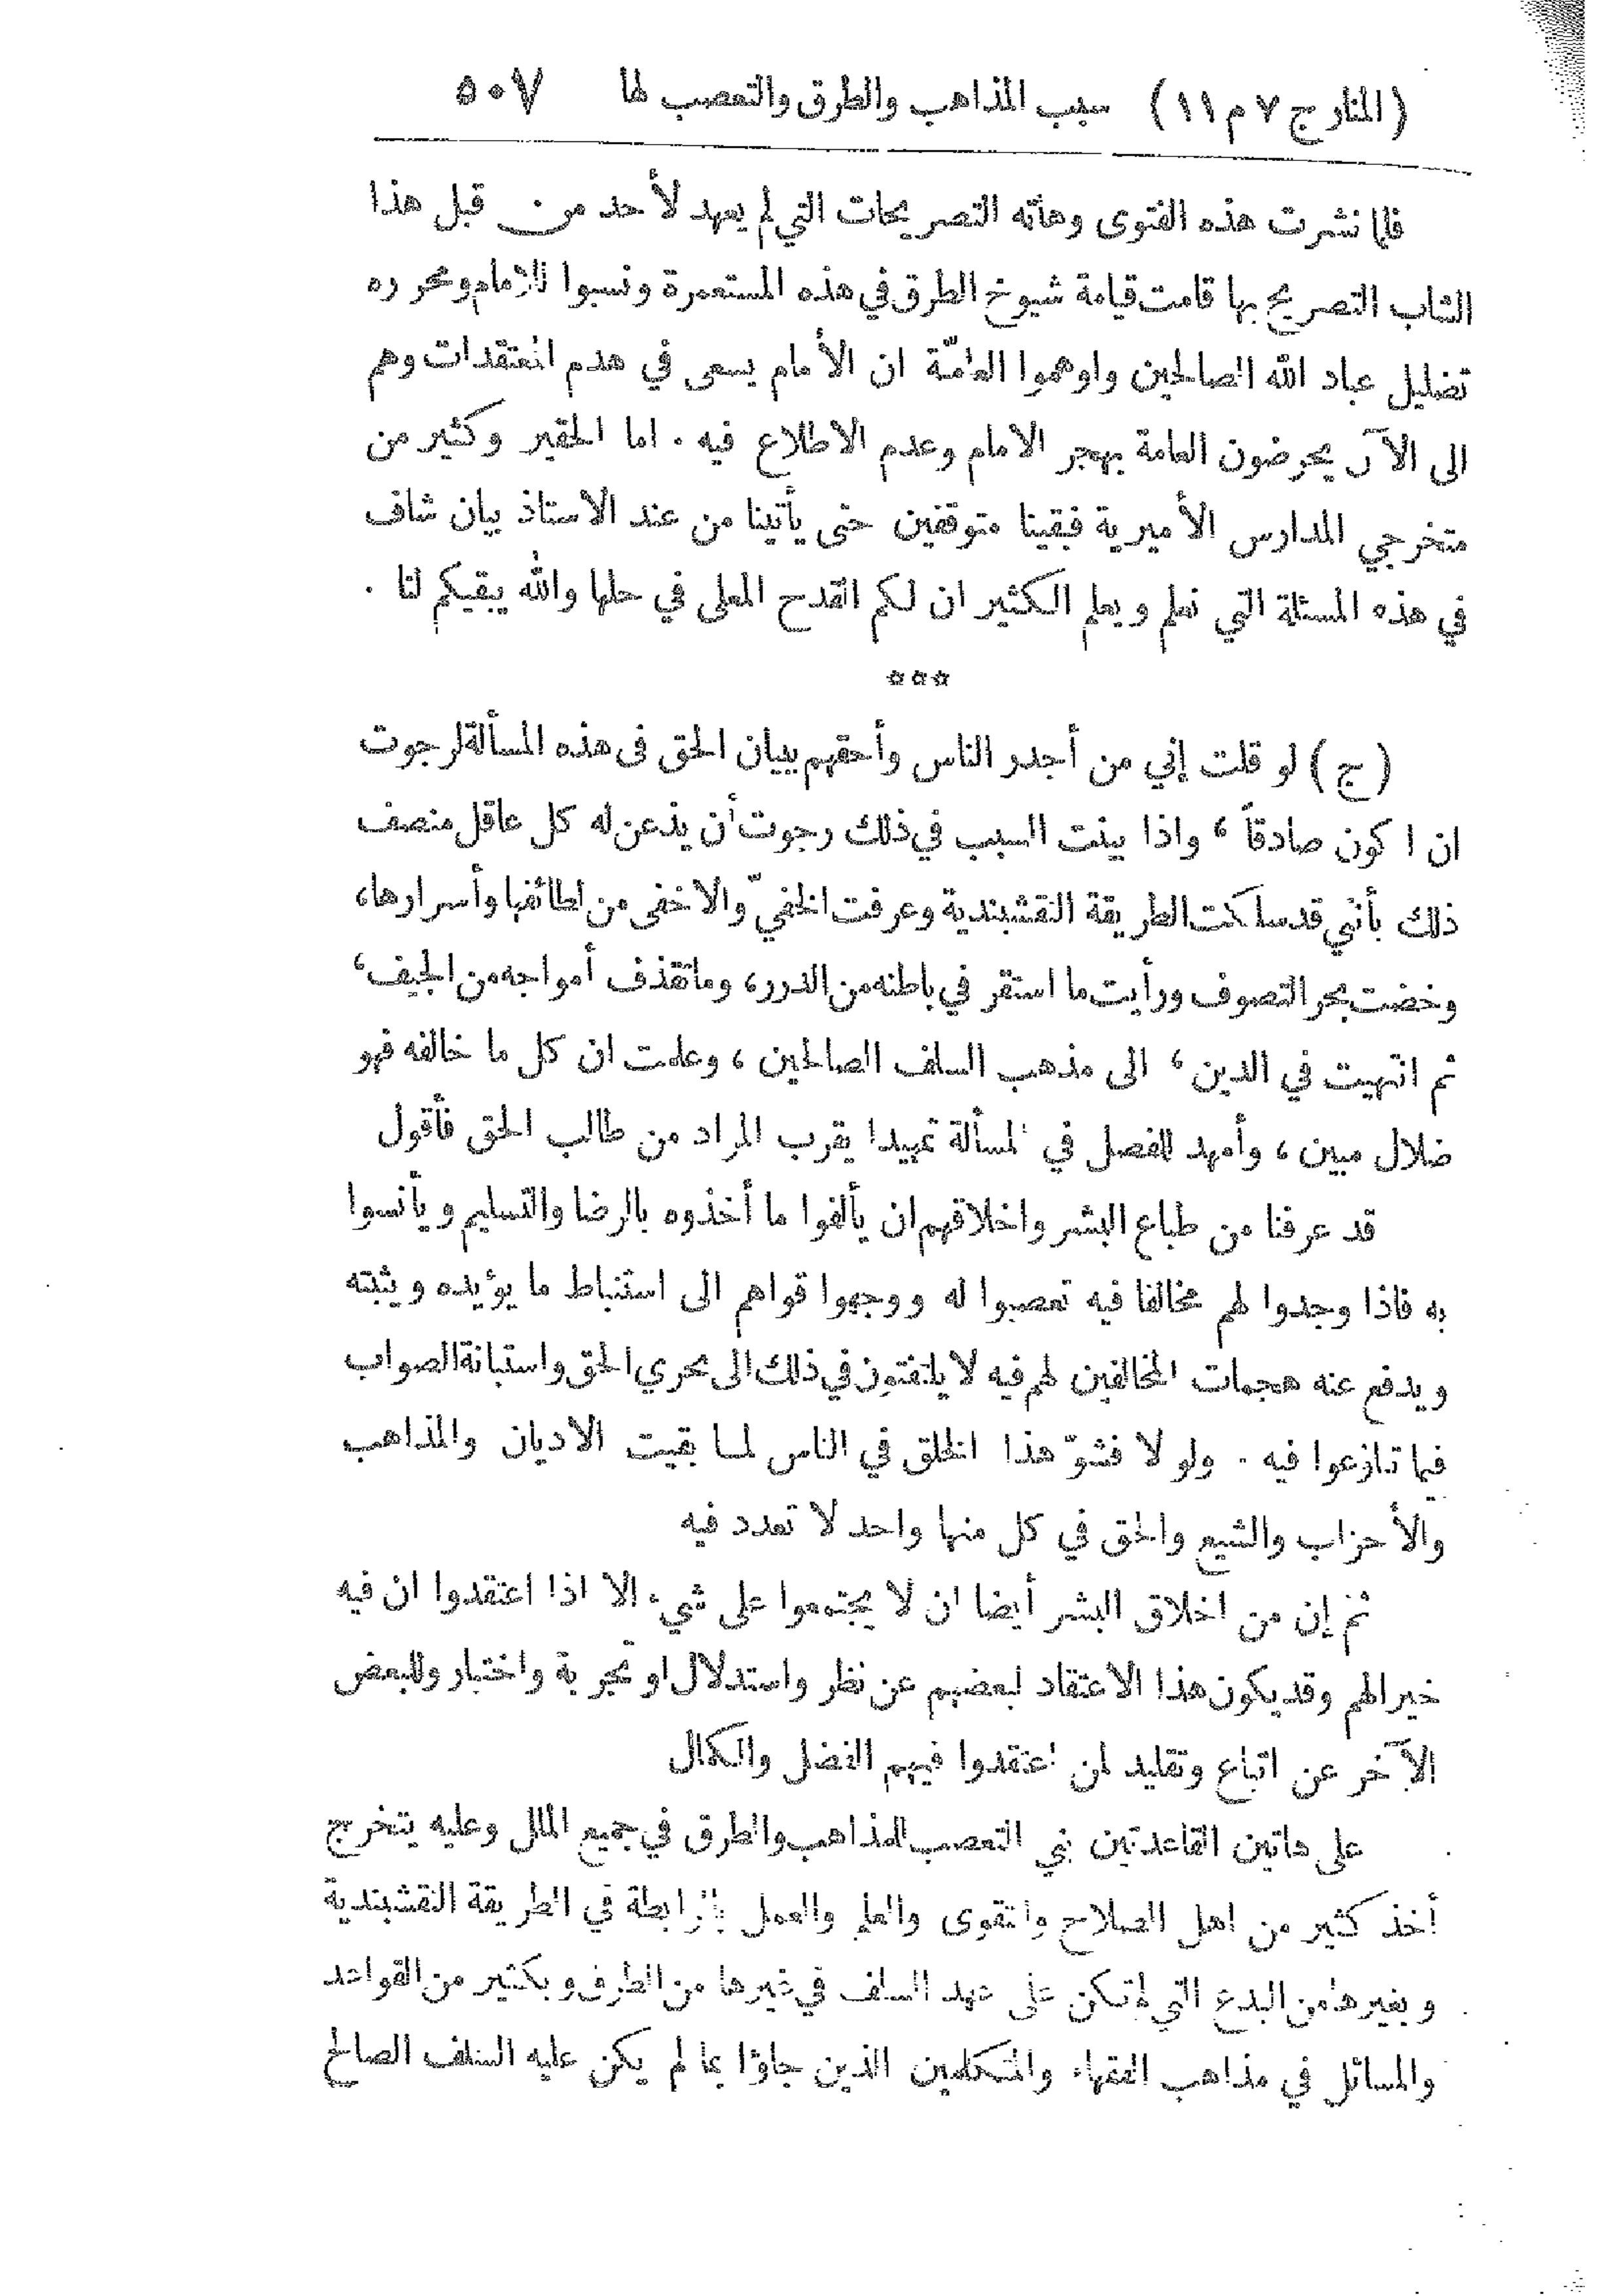 (المنار ج ٧ م ١١) سبب المذاهب والطرق والتعصب لها ٥٠٧
فلما نشرت هذه الفتوى وهاته التصريحات التي لم يعهد لأحد من قبل هذا
الشاب التصريح بها قامت قيامة شيوخ الطرق في هذه المستعمرة ونسبوا للامام ومحرره
تضليل عباد الله الصالحين واوهموا العامّة ان الأمام يسعى في هدم المعتقدات وهم
الى الآن يحرضون العامة بهجر الامام وعدم الاطلاع فيه . اما الحقير وكثير من
متخرجي المدارس الأميرية فبقينا متوقفين حتى يأتينا من عند الاستاذ بيان شاف
في هذه المسئلة التي نعلم ويعلم الكثير ان لكم القدح المعلى في حلها والله يبقيكم لنا .
***
(ج) لو قلت إني من أجدر الناس وأحقهم ببيان الحق في هذه المسألة لرجوت
ان اكون صادقاً ، واذا بينت السبب في ذلك رجوت أن يذعن له كل عاقل منصف
ذلك بأنني قد سلكت الطريقة النقشبندية وعرفت الخفيّ والاخفى من لطائفها وأسرارها،
وخضت بحر التصوف ورأيت ما استقر في باطنه من الدرر، وما تقذف أمواجه من الجيف،
ثم انتهيت في الدين ، الى مذهب السلف الصالحين ، وعلمت ان كل ما خالفه فهو
ضلال مبين ، وأمهد للفصل في المسألة تمهيدا يقرب المراد من طالب الحق فأقول
قد عرفنا من طباع البشر واخلاقهم ان يألفوا ما أخذوه بالرضا والتسليم ويأنسوا
به فاذا وجدوا لهم مخالفا فيه تعصبوا له ووجهوا قواهم الى استنباط ما يؤيده ويثبته
ويدفع عنه هجمات المخالفين لهم فيه لا يلتفتون في ذلك الى تحري الحق واستبانة الصواب
فيما تنازعوا فيه . ولولا فشوّ هذا الخلق في الناس لما بقيت الاديان والمذاهب
والأحزاب والشيع والحق في كل منها واحد لا تعدد فيه
ثم إن من اخلاق البشر أيضا ان لا يجتمعوا على شيء إلا اذا اعتقدوا ان فيه
خيرا لهم وقد يكون هذا الاعتقاد لبعضهم عن نظر واستدلال او تجربة واختبار وللبعض
الآخر عن اتباع وتقليد لمن اعتقدوا فيهم الفضل والكمال
على هاتين القاعدتين بني التعصب للمذاهب والطرق في جميع الملل وعليه يتخرج
أخذ كثير من اهل الصلاح والتقوى والعلم والعمل بالرابطة في الطريقة النقشبندية
وبغيرها من البدع التي لم تكن على عهد السلف في غيرها من الطرق وبكثير من القواعد
والمسائل في مذاهب الفقهاء والمتكلمين الذين جاؤا بما لم يكن عليه السلف الصالح